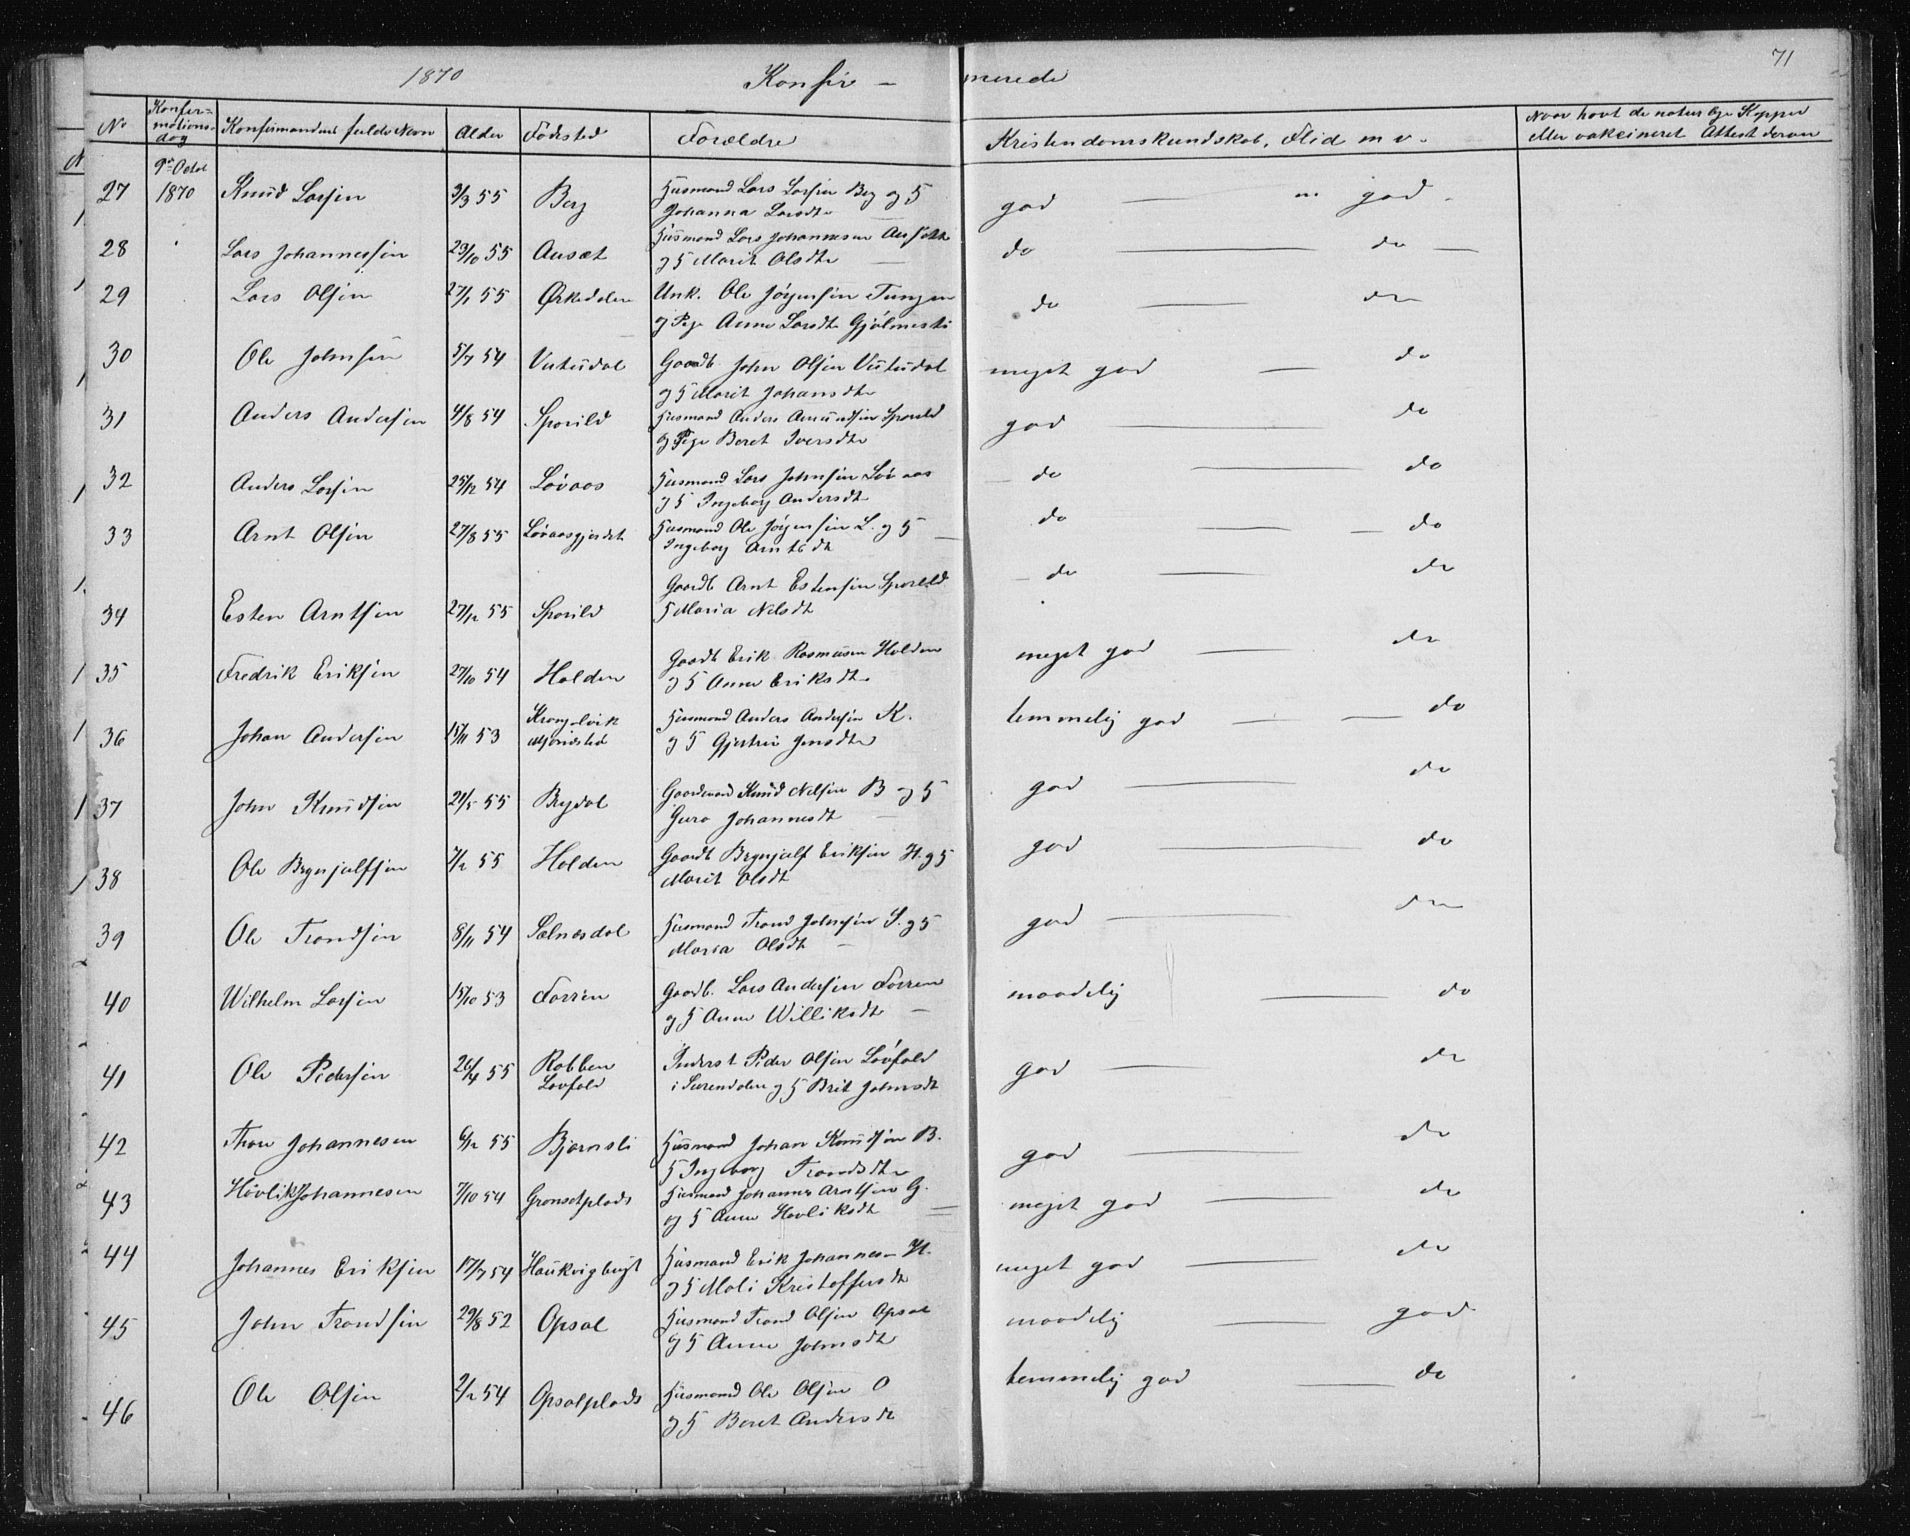 1870 Konfir - merede 71
No Konfir=mations-dag Konfirmandens fulde Navn Alder Födested Forældre Kristendomskundskab, Flid m v. Naar havt de naturlige Kopper eller vakcineret Attest derom
9de Octbr
27 1870 Knud Larsen 3/3 55 Berg Husmand Lars Larsen Berg og H god — m god
Johanna Larsdtr
28 Lars Johannessen 23/10 55 Ausæt Husmand Lars Johannesen Ausætt do — do —
og H Marit Olsdtr —
29 Lars Olsen 27/1 55 Ørkedalen Unk. Ole Jørgensen Tungen do — do
og Pige Anne Larsdtr Gjølmesli
30 Ole Johnsen 5/7 54 Vutudal Gaardb John Olsen Vutudal meget god — do
og H Marit Johansdtr
31 Anders Andersen 4/8 54 Sporild Husmand Anders Amundsen Sporild god — do
og Pige Beret Iversdtr
32 Anders Larsen 25/12 54 Løvaas Husmand Lars Johnsen Løvaas do — do
og H Ingeborg Andersdtr
33 Arnt Olsen 27/8 55 Løvaasgjerdet Husmand Ole Jørgensen L. og H — do — do
Ingeborg Arntsdtr
Gaardb Arnt Estensen Sporild — do — do
34 Esten Arntsen 27/12 55 Sporild H Maria Nelsdtr
35 Fredrik Eriksen 27/10 54 Holden Gaardb Erik Rasmusen Holden meget god — do
og H Anne Eriksdtr
36 Johan Andersen 15/11 53 Krongelvik Husmand Anders Andersen K. temmelig god — do
og H Gjertru Jensdtr
37 John Knudsen 21/5 55 Bygdal Gaardmand Knud Nelsen B og H god — do
Guro Johannesdt —
38 Ole Brynjulfsen 7/2 55 Holden Gaardb Brynjulf Eriksen H. og H god — do
Marit Olsdt
39 Ole Trondsen 8/11 54 Sælnæsdal Husmand Trond Johnsen S. og H god — do
Maria Olsdt —
40 Wilhelm Larsen 15/10 53 Forren Gaardb. Lars Andersen Forren maadelig — do
og H Anne Williksdtr —
41 Ole Pedersen 26/4 55 Robben Inderst Peder Olsen Løvfald god — do
Løvfald i Surendalen og H Brit Johnsdt
42 Thore Johannesen 6/12 55 Bjørnsli Husmand Johan Knudsen B. god — do
H Ingeborg Trondsdtr
43 Høvlik Johannesen 7/10 54 Gronsetplads Husmand Johannes Arntsen G. meget god — do
og H Anne Høvliksdt
44 Johannes Eriksen 17/7 54 Haukvigbugt Husmand Erik Johannesen H. meget god — do
og H Mali Kristoffersdt
45 John Trondsen 29/8 52 Opsal Husmand Trond Olsen Opsal maadelig — god
og H Anne Johnsdtr
46 Ole Olsen 2/2 54 Opsalplads Husmand Ole Olsen O temmelig god — do
og H Beret Andersdt